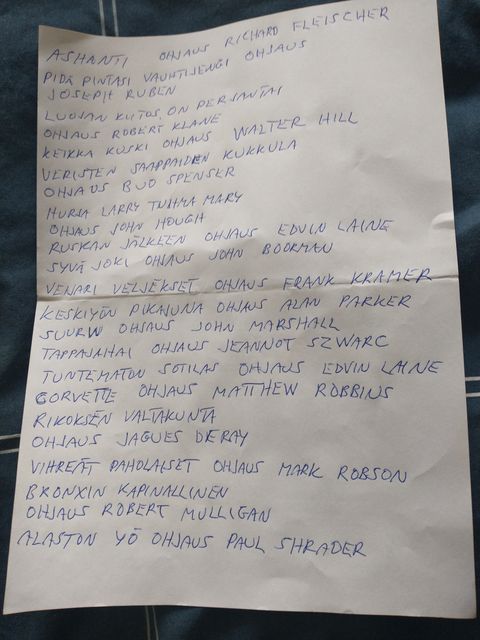 ASHANTI OHJAUS RICHARD FLEISCHER
PIDÄ PINTASI VAUHTIJENGI OHJAUS
JOSEPH RUBEN
LUOJAN KIITOS ON PERJANTAI
OHJAUS ROBERT KLANE
KEIKKA KUSKI OHJAUS WALTER HILL
VERISTEN SAAPPAIDEN KUKKULA
OHJAUS BUD SPENSER
HURJA LARRY TUHMA MARY
OHJAUS JOHN HOUGH
RUSKAN JÄLKEEN OHJAUS EDVIN LAINE
SYVÄ JOKI OHJAUS JOHN BOORMAN
VENARI VELJEKSET OHJAUS FRANK KRAMER
KESKIYÖN PIKAJUNA OHJAUS ALAN PARKER
OHJAUS JOHN MARSHALL
TAPPAJAHAI OHJAUS JEANNOT SZWARC
TUNTEMATON SOTILAS OHJAUS EDVIN LAINE
CORVETTE OHJAUS MATTHEW ROBBINS
RIKOKSEN VALTAKUNTA
OHJAUS JAGUES DERAY
VIHREÄT PAHOLAISET OHJAUS MARK ROBSON
BRONXIN KAPINALLINEN
OHJAUS ROBERT MULLIGAN
ALASTON YÖ OHJAUS PAUL SHRADER